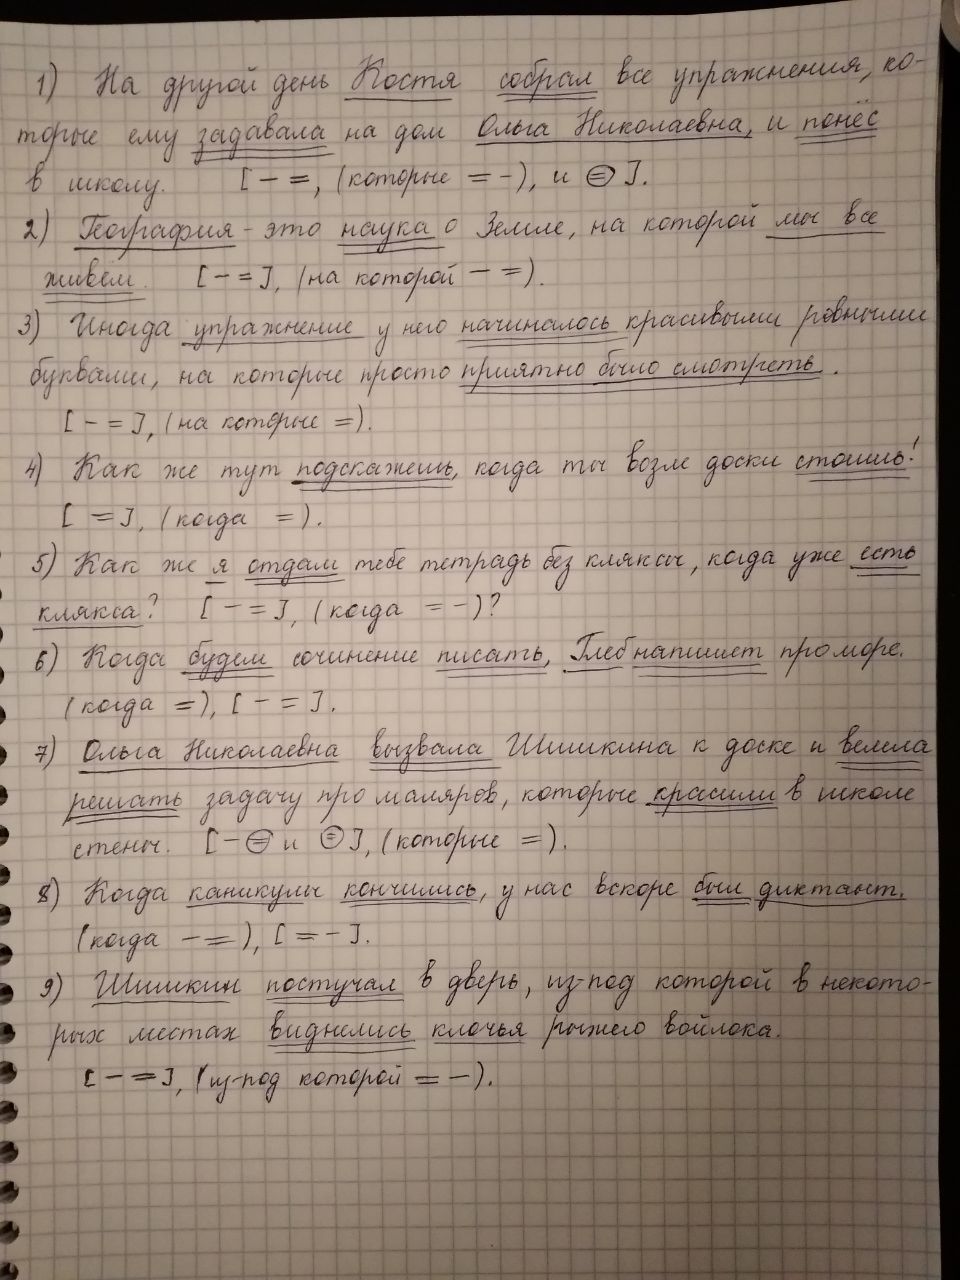 1) На другой день Костя собрал все упражнения, ко-
торые ему задавала на дом Ольга Николаевна, и понёс
в школу. [ – =, (которые = –), и ⊜ ].
2) География – это наука о Земле, на которой мы все
живём. [ – = ], (на которой – =).
3) Иногда упражнение у него начиналось красивыми ровными
буквами, на которые просто приятно было смотреть.
[ – = ], (на которые =).
4) Как же тут подскажешь, когда ты возле доски стоишь!
[ = ], (когда =).
5) Как же я отдам тебе тетрадь без кляксы, когда уже есть
клякса? [ – = ], (когда = –)?
6) Когда будем сочинение писать, Глеб напишет про море.
(когда =), [ – = ].
7) Ольга Николаевна вызвала Шишкина к доске и велела
решать задачу про маляров, которые красили в школе
стены. [ – ⊜ и ⊜ ], (которые =).
8) Когда каникулы кончились, у нас вскоре был диктант.
(когда – =), [ = – ].
9) Шишкин постучал в дверь, из-под которой в некото-
рых местах виднелись клочья рыжего войлока.
[ – = ], (из-под которой = –).